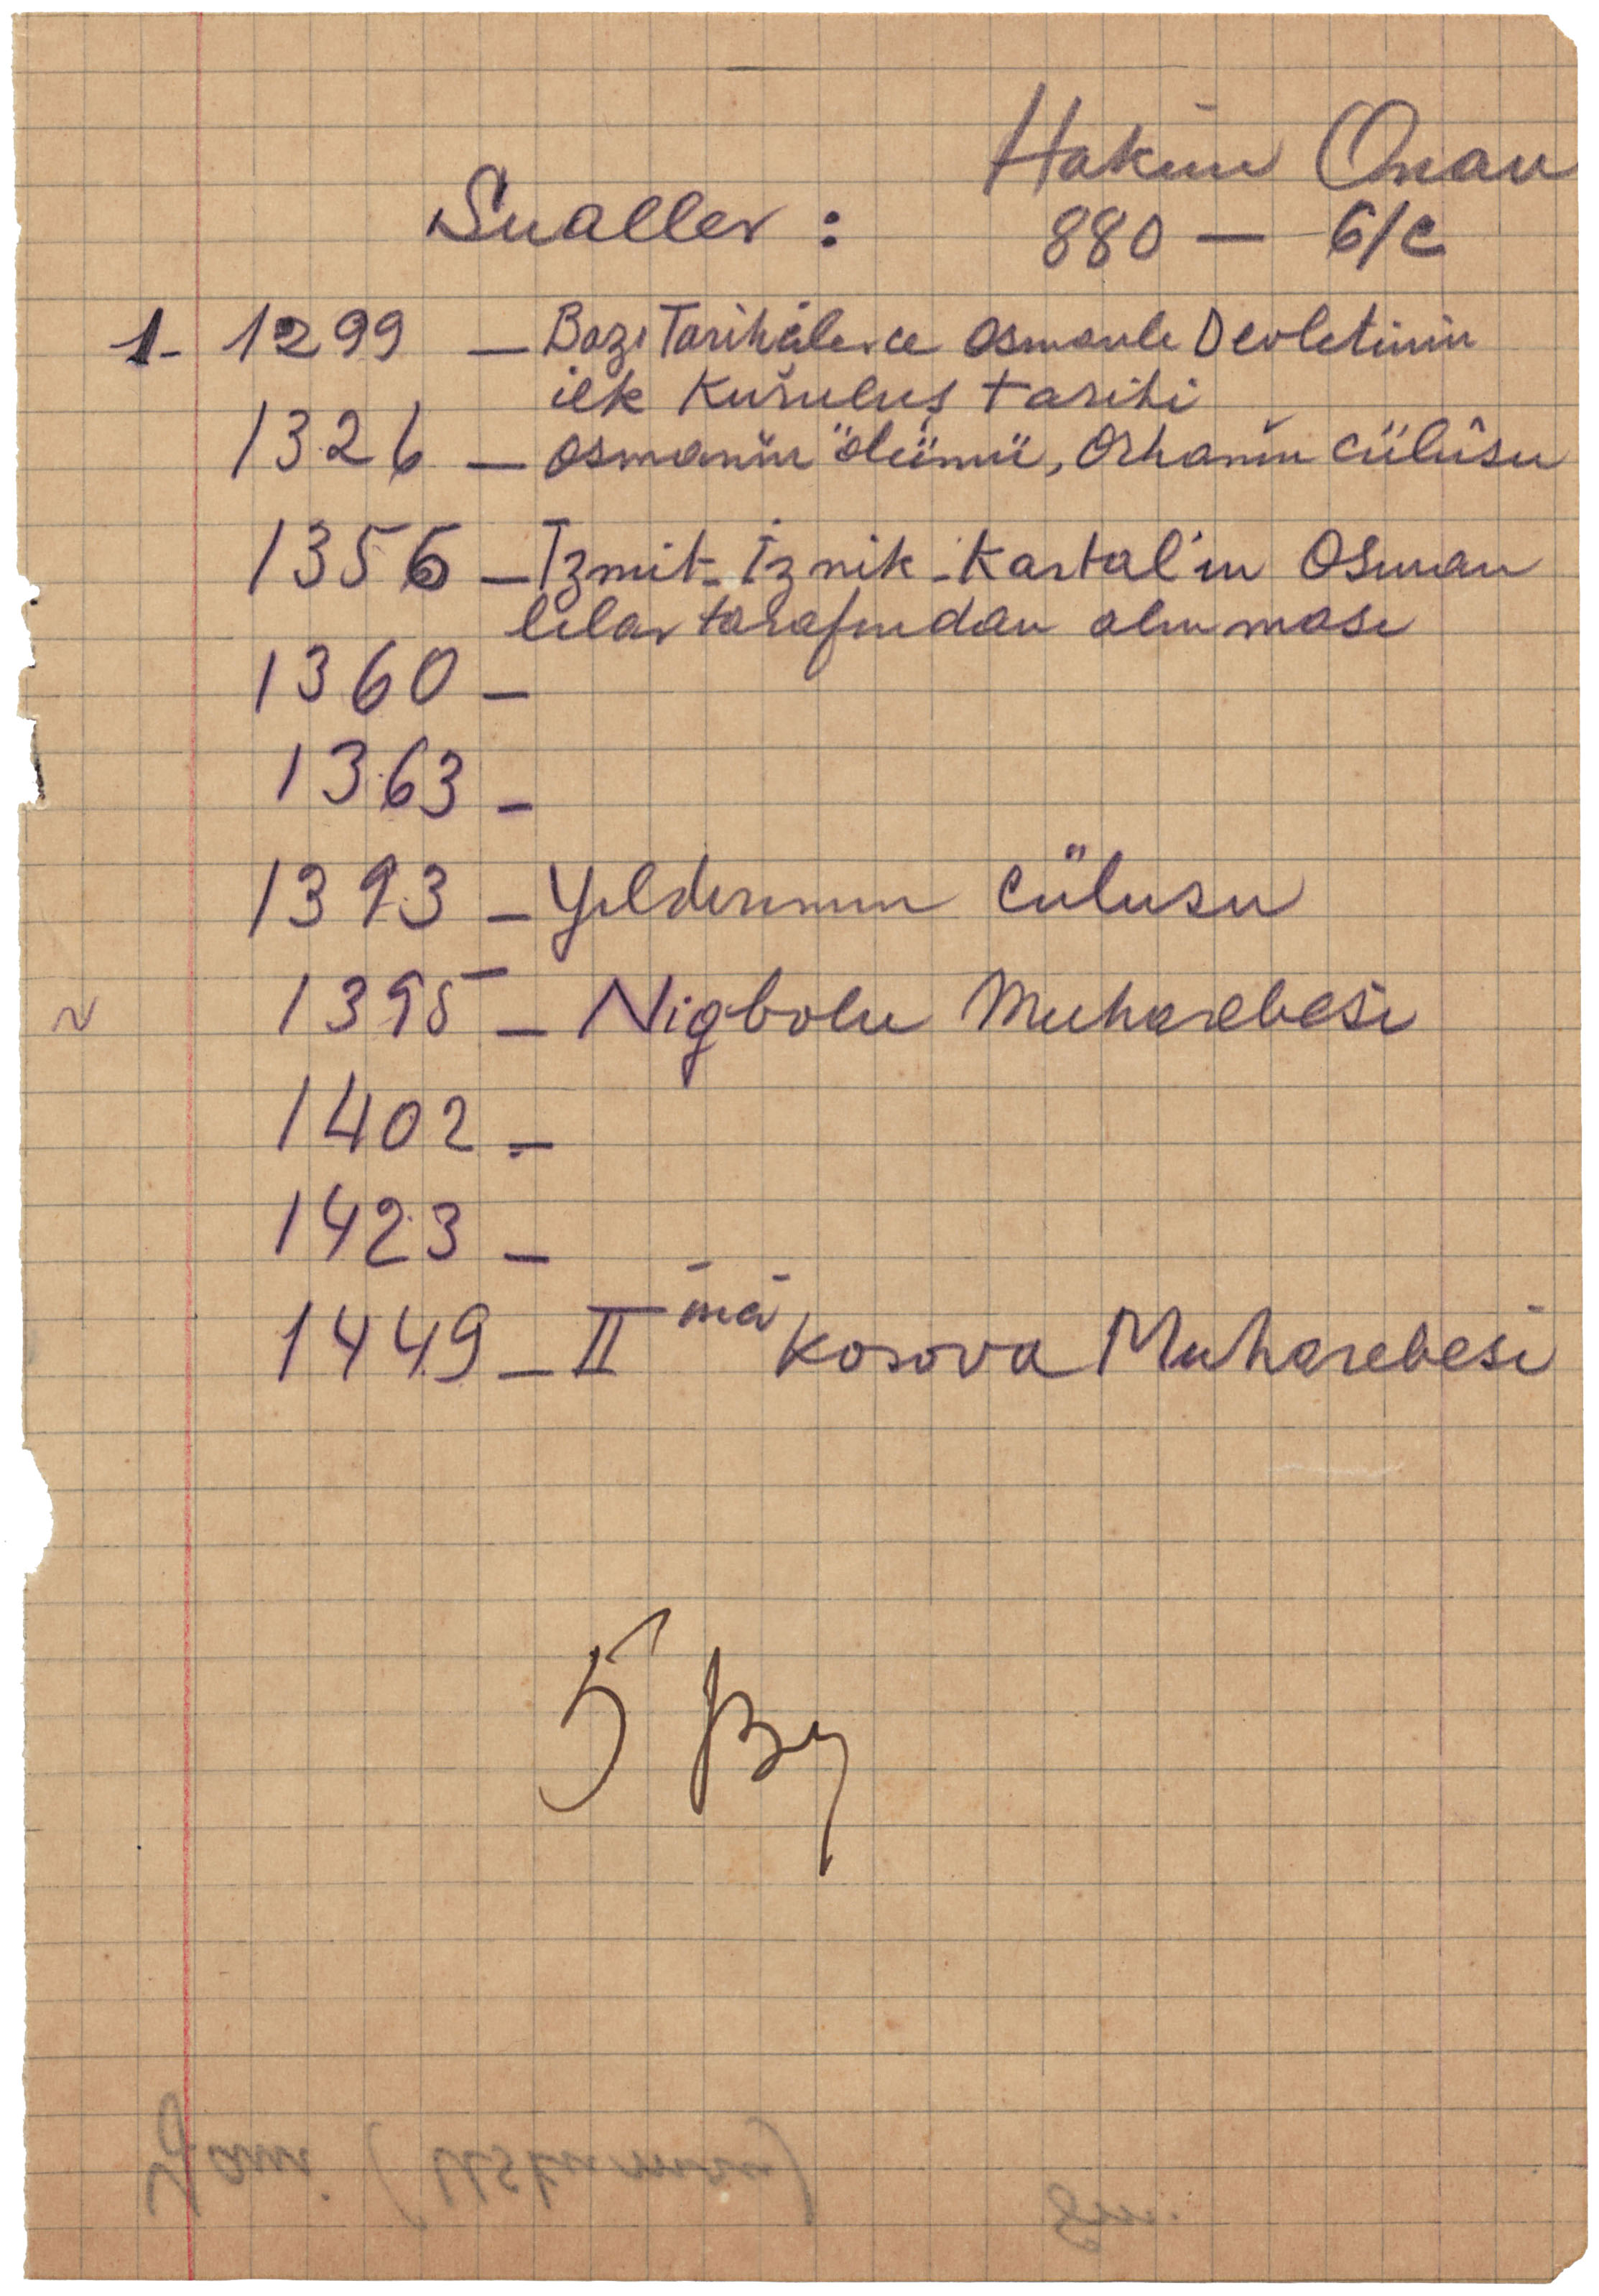 Hakim Onan
Sualler :
880 — 6/c
1- 1299 — Bazı Tarihcilerce Osmanlı Devletinin
ilk Kuruluş tarihi
1326 — Osmanın ölümü, Orhanın cülûsu
1356 — İzmit - İznik - Kartal'ın Osman
lılar tarafından alınması
1360 —
1363 —
1393 — Yıldırımın Cülusu
1395 — Nigbolu Muharebesi
1402 —
1423 —
1449 — II inci Kosova Muharebesi
5